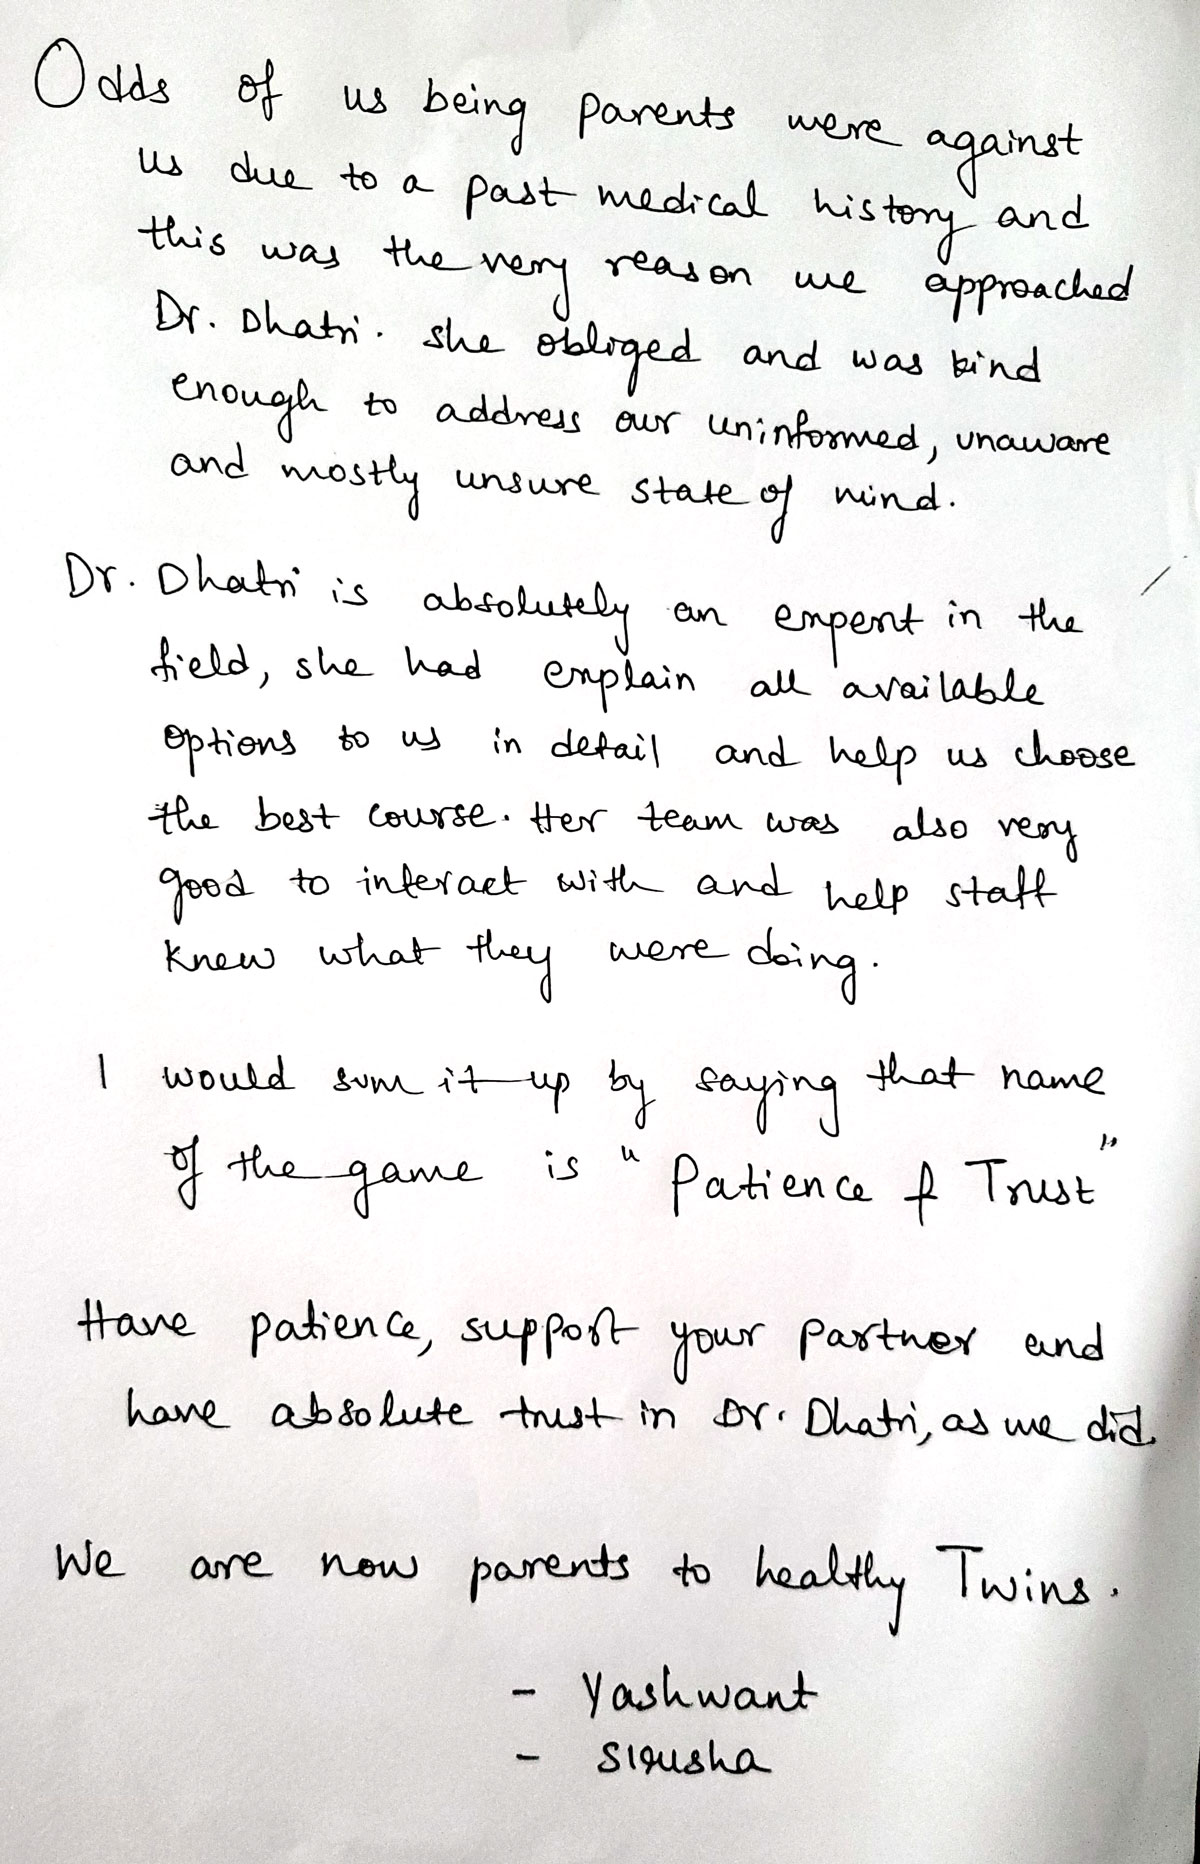 Odds of us being parents were against
us due to a past medical history and
this was the very reason we approached
Dr. Dhatri. she obliged and was kind
enough to address our uninformed, unaware
and mostly unsure state of mind.
Dr. Dhatri is absolutely an expert in the
field, she had explain all available
options to us in detail and help us choose
the best course. Her team was also very
good to interact with and help staff
knew what they were doing.
I would sum it up by saying that name
of the game is "Patience & Trust"
Have patience, support your partner and
have absolute trust in Dr. Dhatri, as we did.
We are now parents to healthy Twins.
- Yashwant
- Sirusha